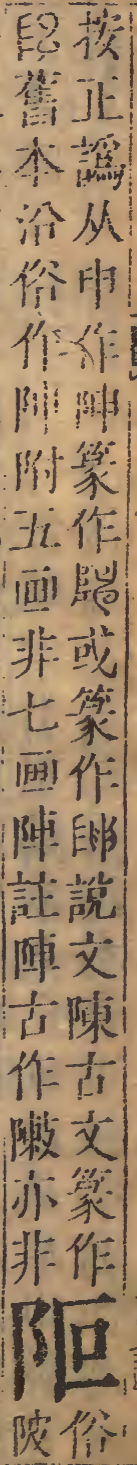 按正譌从申作𨸬篆作或篆作說文陳古文篆作
舊本沿俗作附五画非七画陣註陣古作敶亦非
俗
陂